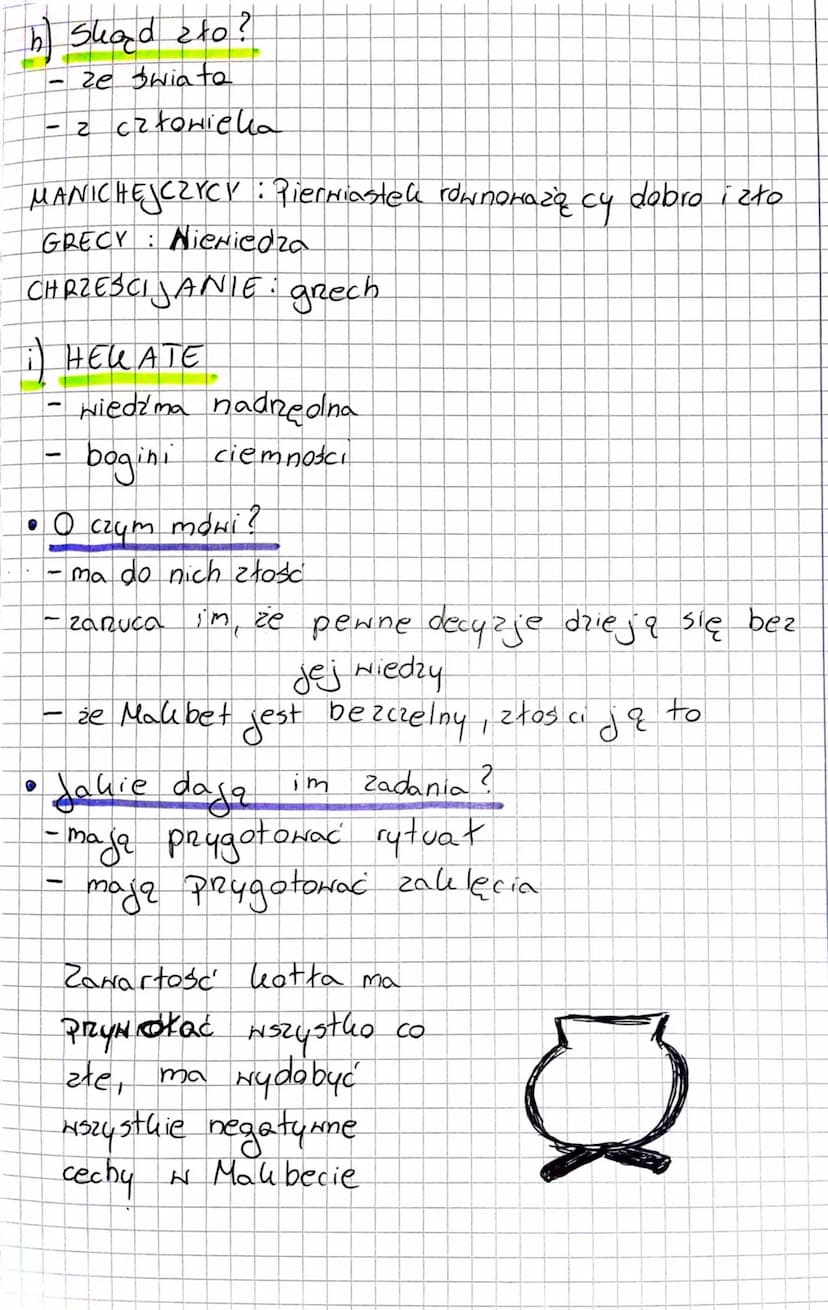 h) Skąd zło?
- ze świata
- z człowieka
MANICHEJCZYCY : Pierwiastek równoważący dobro i zło
GRECY : Niewiedza
CHRZEŚCIJANIE : grzech
i) HEKATE
- wiedźma nadrzędna
- bogini ciemności
• O czym mówi?
- ma do nich złość
- zarzuca im, że pewne decyzje dzieją się bez
jej wiedzy
- że Makbet jest bezczelny, złości ją to
• Jakie dają im zadania?
- mają przygotować rytuał
- mają przygotować zaklęcia
Zawartość kotła ma
przywołać wszystko co
złe, ma wydobyć
wszystkie negatywne
cechy w Makbecie